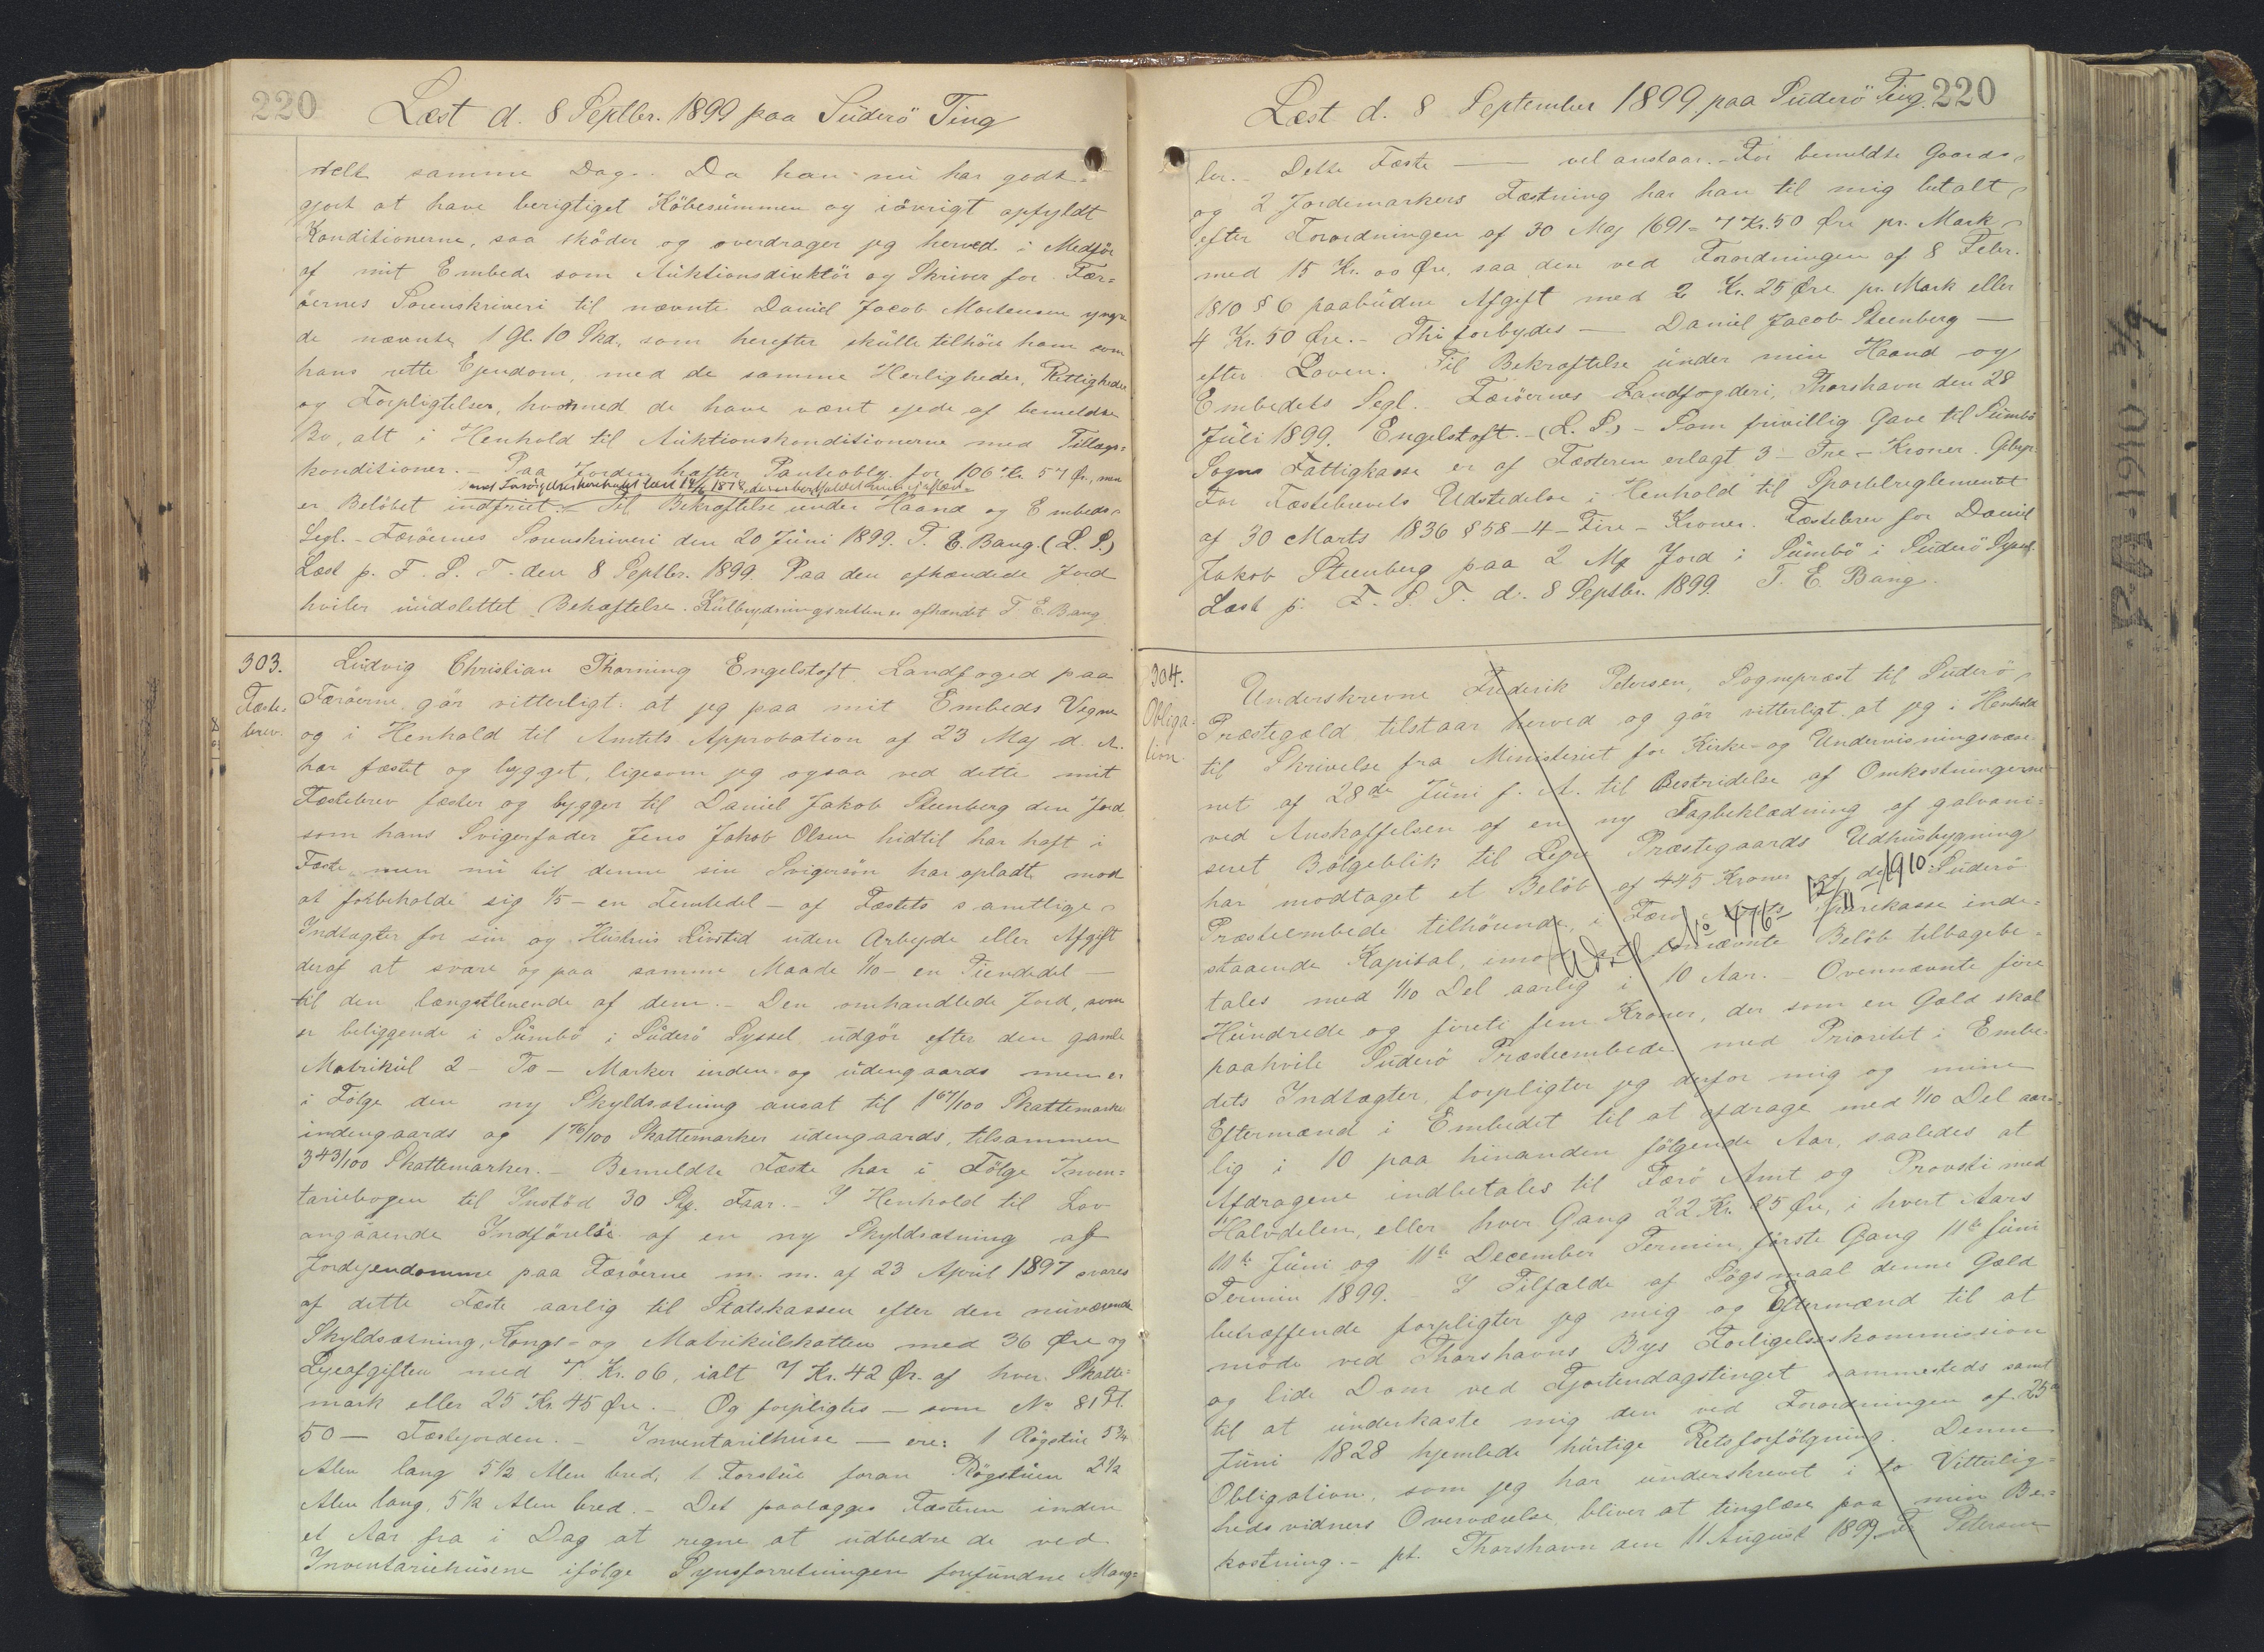 220
Læst d. 8 Septbr. 1899 paa Süderö Ting
samme Dag. Da han nu har godt-
gjort at have berigtiget Köbesümmen og iövrigt opfyldt
Konditionerne, saa sköder og overdrager jeg herved i Medför
af mit Embede som Auktionsdirektör og Skriver for Fær=
öernes Sorenskriveri til nævnte Daniel Jacob Mortensen yngre
de nævnte 1 Gl. 10 Skd., som herefter skülle tilhöre ham som
hans rette Ejendom, med de samme Herligheder, Rettigheder
og Forpligtelser, hvormed de have været ejede af bemeldte
Bo, alt i Henhold til Auktionskonditionerne med Tillægs=
konditioner. – Paa Jorden hæfter Panteoblg. for 106 Kr. 57 Øre, men
er Beløbet indfriet. – Til Bekræftelse under Haand og Embeds-
Segl. – Færöernes Sorenskriveri den 20 Jüni 1899. T. E. Bang. (L. S.)
Læst p. F. S. T. den 8 Septbr. 1899. Paa den afhændede Jord
hviler uudslettet Behæftelse. Kulbrydningsretten er afhændet T. E. Bang
303.
Fæste-
brev.
Lüdvig Christian Thorning Engelstoft Landfoged paa
Færöerne, gör vitterligt: at jeg paa mit Embeds Vegne
og i Henhold til Amtets Approbation af 23 Maj d. A.
har fæstet og bygget, ligesom jeg ogsaa ved dette mit
Fæstebrev fæster og bygger til Daniel Jakob Steenberg den Jord,
som hans Svigerfader Jens Jakob Olsen hidtil har haft i
Fæste, men nü til denne sin Svigersön har opladt mod
at forbeholde sig 1/5 – en Femtedel – af Fæstets samtlige
Indtægter for sin og Hüstrüs Livstid üden Arbejde eller Afgift
deraf at svare og paa samme Maade 1/10 – en Tiendedel –
til den længstlevende af dem. – Den omhandlede Jord, som
er beliggende i Sümbö i Süderö Syssel, udgör efter den gamle
Matrikül 2 – To – Marker inden- og üdengaards men er
i Følge den ny Skyldsætning ansat til 1 67/100 Skattemarker
indengaards og 1 76/100 Skattemarker üdengaards, tilsammen
3 43/100 Skattemarker. – Bemeldte Fæste har i Følge Inven=
tariebogen til Instöd 30 Stk. Faar. – I Henhold til Lov
angaaende Indförelse af en ny Skyldsætning af
Jordejendomme paa Færöerne m. m. af 23 April 1897 svares
af dette Fæste aarlig til Statskassen efter den nüværende
Skyldsætning, Konge- og Matrikülskatten med 36 Øre og
Lejeafgiften med 7 Kr. 06, ialt 7 Kr. 42 Ør. af hver Skatte=
mark eller 25 Kr. 45 Øre. – Og forpligtes – som No 81 Fl.
50 – Fæstejorden. – Inventariehüse – ere: 1 Rögstüe 5 3/4
Alen lang 5 1/2 Alen bred, 1 Forstüe foran Rögstüen 2 1/2
Alen lang, 5 1/2 Alen bred. – Det paalægges Fæsteren inden
et Aar fra i Dag at regne at udbedre de ved
Inventariehüsene ifölge Synsforretningen forefundne Mang=
220
Læst d. 8 September 1899 paa Süderö Ting.
ler. – Dette Fæste — vel anstaar. – For bemeldte Gaards
og 2 Jordemarkers Fæstning har han til mig betalt
efter Forordningen af 30 Maj 1691 – 7 Kr. 50 Øre pr. Mark
med 15 Kr. 00 Øre, saa den ved Forordningen af 8 Febr.
1810 § 6 paabüdne Afgift med 2 Kr. 25 Øre pr. Mark eller
4 Kr. 50 Øre. – Thi forbydes — Daniel Jacob Steenberg —
efter Loven. Til Bekræftelse ünder min Haand og
Embedets Segl. Færöernes Landfogderi, Thorshavn den 28
Jüli 1899. Engelstoft. – (L. S.) – Som frivillig Gave til Sümbö
Sogns Fattigkasse er af Fæsteren erlagt 3 – Tre – Kroner. Gebyr
for Fæstebrevets Udstedelse i Henhold til Sportelreglementet
af 30 Marts 1836 § 58 – 4 – Fire – Kroner. Fæstebrev for Daniel
Jakob Steenberg paa 2 Mk Jord i Sümbö i Süderö Syssel.
Læst p. F. S. T. d. 8 Septbr. 1899. T. E. Bang.
304.
Obliga-
tion.
Underskrevne Frederik Petersen, Sognepræst til Süderö
Præstegæld tilstaar herved og gör vitterligt, at jeg i Henhold
til Skrivelse fra Ministeriet for Kirke- og Undervisningsvæse-
net af 28de Jüni f. A. til Bestridelse af Omkostningerne
ved Anskaffelsen af en ny Tagbeklædning af galvani=
seret Bölgeblik til Præstegaards Udhüsbygning
har modtaget et Belöb af 445 Kroner af de Süderö
Præsteembede tilhörende, i Færö Amts Sparekasse inde=
staaende Kapital, imod at omnævnte Belöb tilbagebe=
tales med 1/10 Del aarlig i 10 Aar. – Ovennævnte fire
Hündrede og fireti fem Kroner, der som en Gæld skal
paahvile Süderö Præsteembede med Prioritet i Embe-
dets Indtægter, forpligter jeg derfor mig og mine
Eftermænd i Embedet til at afdrage med 1/10 Del aar=
lig i 10 paa hinanden fölgende Aar, saaledes at
Afdragene indbetales til Færö Amt og Provsti med
Halvdelen, eller hver Gang 22 Kr. 25 Øre, i hvert Aars
11te Jüni og 11te December Termin, förste Gang 11te Jüni
Termin 1899. – I Tilfælde af Sögsmaal denne Gæld
betræffende forpligter jeg mig og Eftermænd til at
möde ved Thorshavns Bys Forligelseskommission
og lide Dom ved Fjortendagstinget sammesteds samt
til at ünderkaste mig den ved Forordningen af 25de
Jüni 1828 hjemlede hürtige Retsforfölgning. Denne
Obligation, som jeg har ünderskrevet i to Vitterlig=
hedsvidners Overværelse, bliver at tinglæse paa min Be=
kostning. – pt. Thorshavn den 11 August 1899. Fr. Petersen
Udsl. No 476 12/11 1910